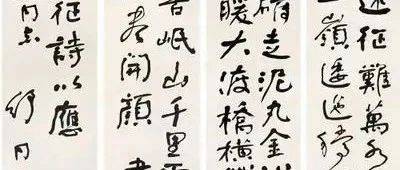 遠征難萬水
嶺逶迤騰
礴走泥丸金
暖大渡橋橫
喜岷山千里雪
盡開顏
征詩以應
同志 舒同